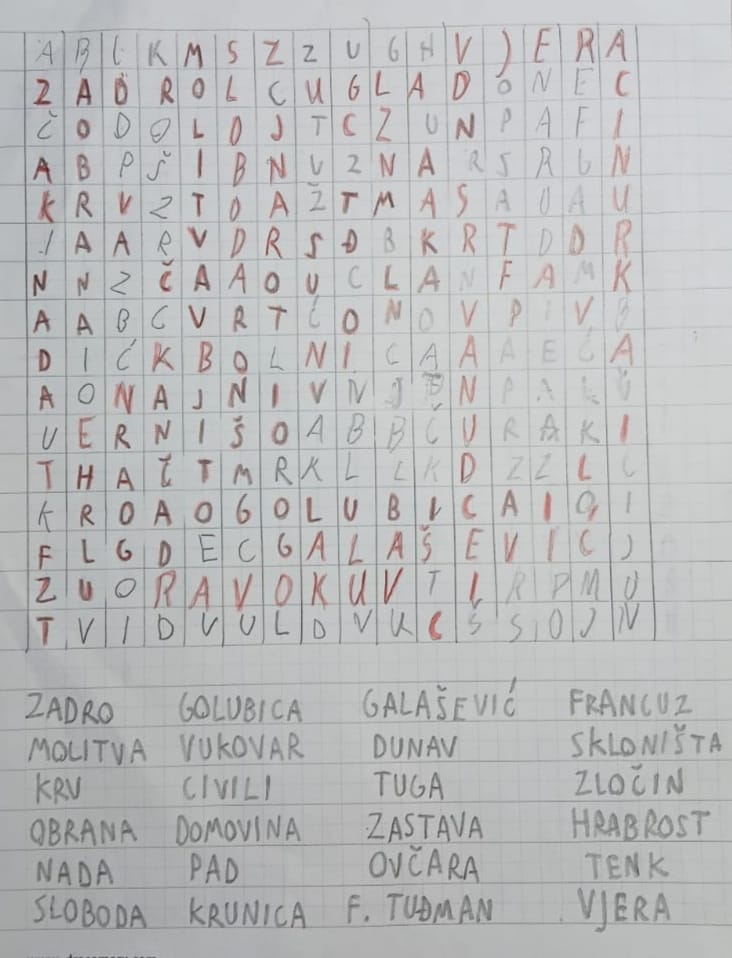 A B L K M S Z Z U G H V J E R A
Z A D R O L C U G L A D O N E C
Č O D O L O J T C Z U N P A F I
A B P Š I B N U Z N A R S R G N
K R V Z T O A Ž T M A S A U A U
I A A R V D R S Đ B K R T D D R
N N Z Č A A O U C L A N F A M K
A A B C V R T Č O N O V P I V B
D I Ć K B O L N I C A A A E Č A
A O N A J N I V N J E N P A L Č
U E R N I Š O A B B Č U R A K I
T H A Č T M R K L L K D Z Z L C
K R O A O G O L U B I C A I O I
F L G D E C G A L A Š E V I C J
Z U O R A V O K U V T L R P M U
T V I D V U L D V U K C Š S O J N
ZADRO GOLUBICA GALAŠEVIĆ FRANCUZ
MOLITVA VUKOVAR DUNAV SKLONIŠTA
KRV CIVILI TUGA ZLOČIN
OBRANA DOMOVINA ZASTAVA HRABROST
NADA PAD OVČARA TENK
SLOBODA KRUNICA F. TUĐMAN VJERA